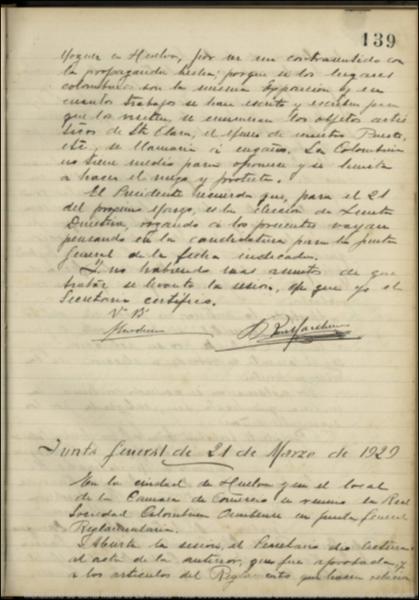 139
Moguer a Huelva, por ser un contrasentido con
la propaganda hecha; porque si los lugares
colombinos son la misma Exposición y en
cuantos trabajos se han escrito y escriben para
que los visiten, se enumeran los objetos artís
ticos de Sta Clara, el Muelle de nuestro Puerto,
etc, se llamaría a engaño. La Colombina
no tiene medios para oponerse y se limita
a hacer el ruego y protesta.
El Presidente recuerda que, para el 21
del próximo Marzo, es la elección de Junta
Directiva, rogando a los presentes vayan
pensando en la candidatura para la junta
general de la fecha indicada.
Y no habiendo más asuntos de que
tratar se levantó la sesión, de que yo el
Secretario certifico.
Vº Bº
Junta General de 21 de Marzo de 1929
En la ciudad de Huelva y en el local
de la Cámara de Comercio se reunió la Real
Sociedad Colombina Onubense en junta general
Reglamentaria.
Abierta la sesión, el Secretario dio lectura
al acta de la anterior, que fue aprobada, y
a los artículos del Reglamento que hacen